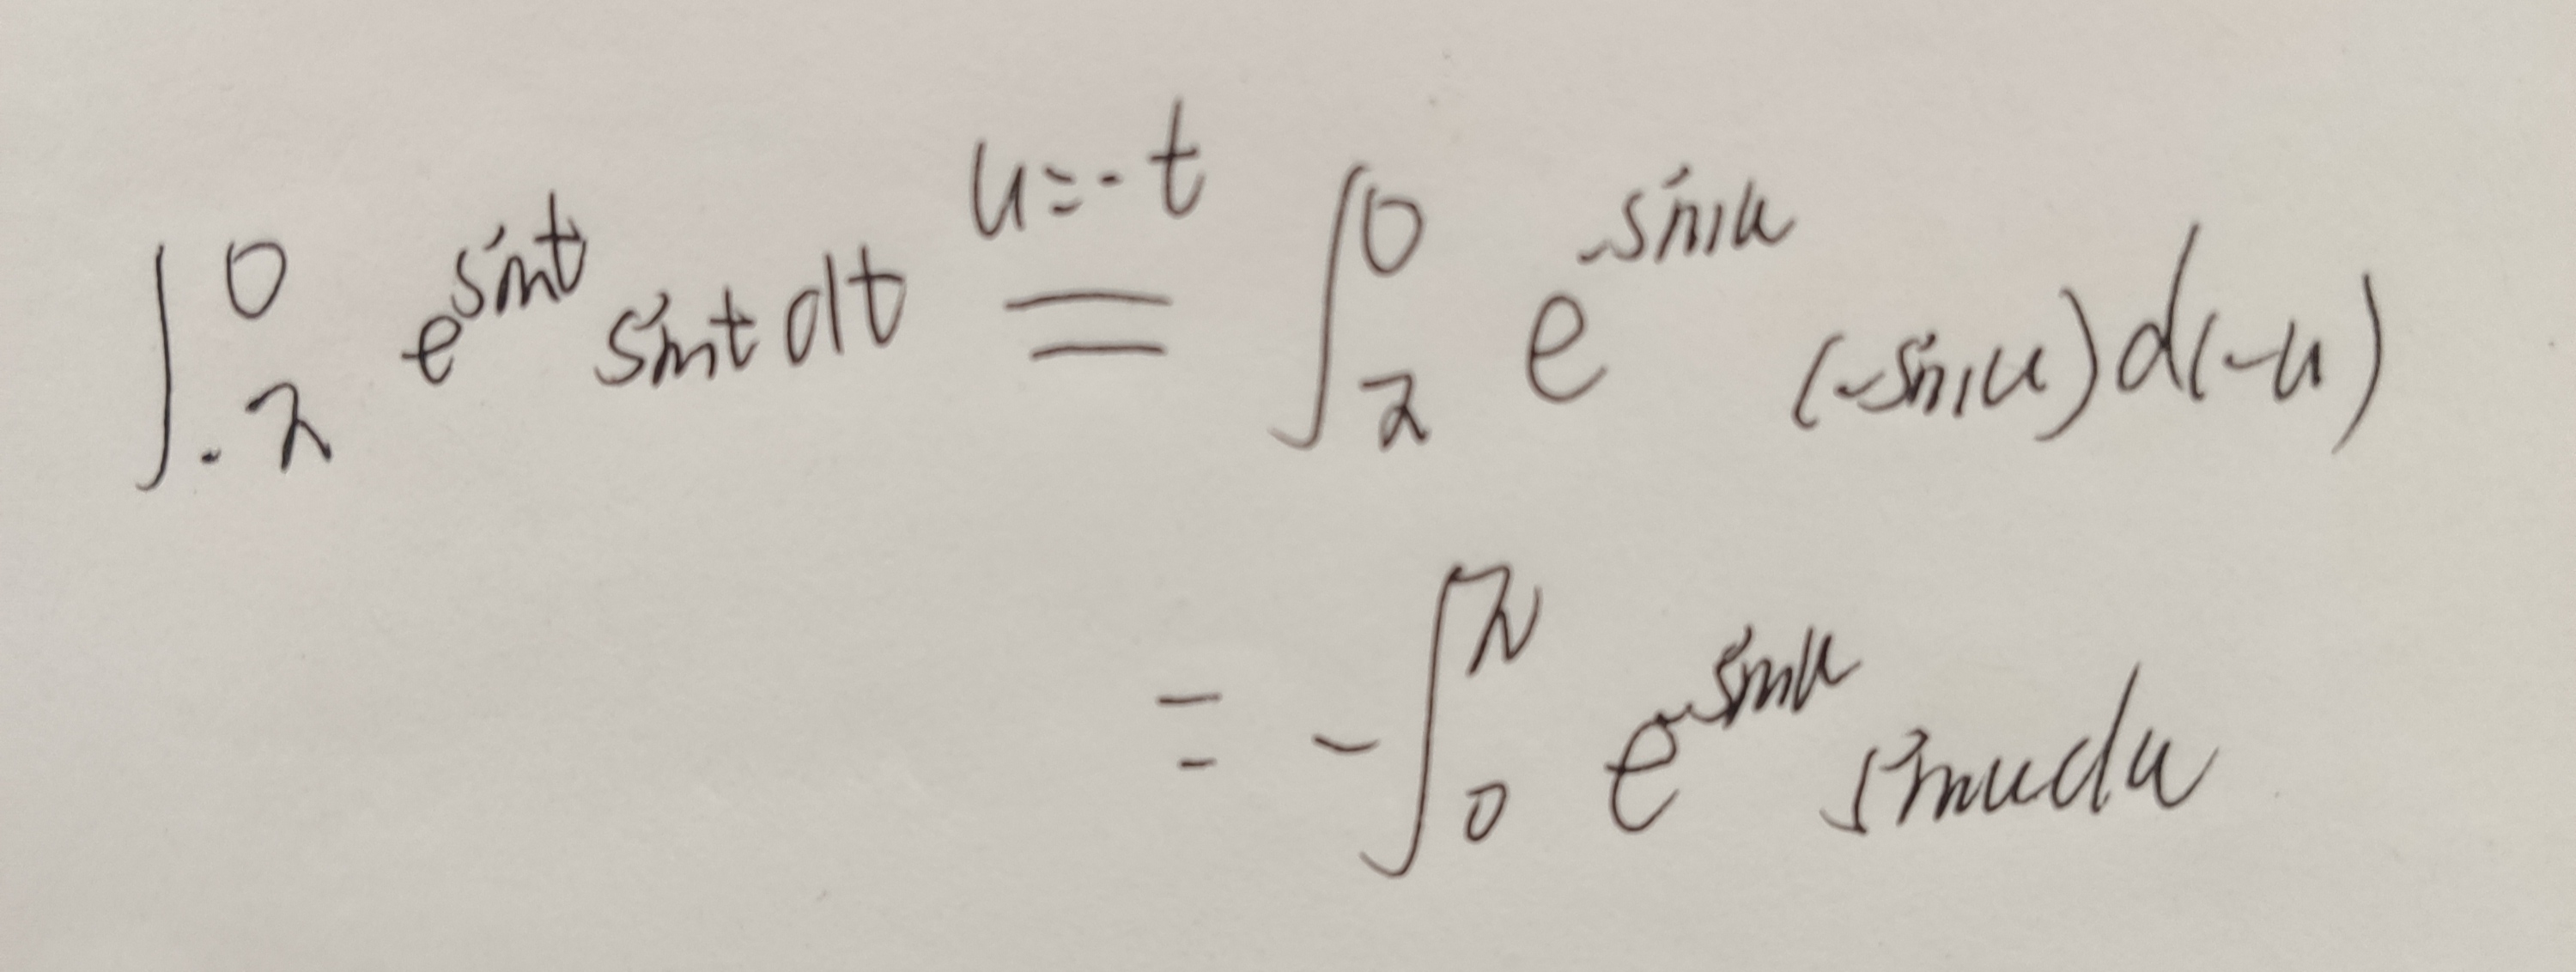 ∫_{-π}^{0} e^{sint} sint dt \overset{u=-t}{=} ∫_{π}^{0} e^{-sinu} (-sinu) d(-u)
= -∫_{0}^{π} e^{-sinu} sinu du